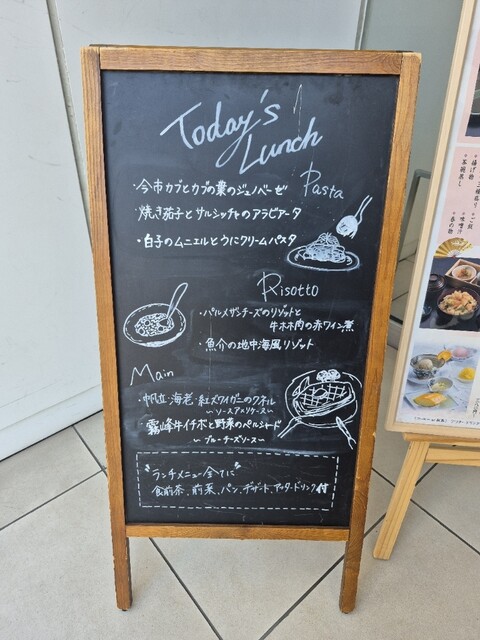 Today's
Lunch
Pasta
・今市カブとカブの葉のジェノベーゼ
・焼き茄子とサルシッチャのアラビアータ
・白子のムニエルとうにクリームパスタ
Risotto
・パルメザンチーズのリゾットと
牛ホホ肉の赤ワイン煮
・魚介の地中海風リゾット
Main
・帆立・海老・紅ズワイガニのクネル
〜ソースアメリケーヌ〜
・霧峰牛イチボと野菜のペルシャード
〜ブルーチーズソース〜
"ランチメニュー全てに"
食前茶、前菜、パン、デザート、アフタードリンク付
揚げ物
茶碗蒸し
ご飯
味噌汁
香の物